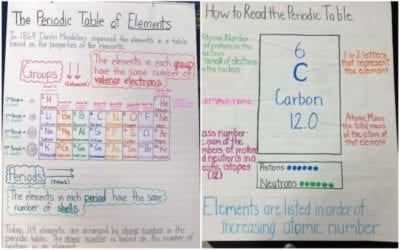 The Periodic Table of Elements
In 1869 Dmitri Mendeleev organized the elements in a table
based on the properties of the elements.
Groups
(columns)
The elements in each group
have the same number of
valence electrons.
H
He
Li
Be
B
C
N
O
F
Ne
Na
Mg
Al
Si
P
S
Cl
Ar
K
Ca
Periods
(rows)
The elements in each period have the same
number of shells.
Today, 114 elements are arranged by atomic number in the
periodic table. The atomic number is based on the number
How to Read the Periodic Table
Atomic Number
# of protons in the
nucleus
6
C
Carbon
12.0
1 or 2 letters
that represent
the element
Common name
Atomic Mass
the total mass
of the atom of
that element
mass number
sum of the
numbers of protons
and neutrons in a
specific isotopes
(12)
Protons
Neutrons
Elements are listed in order of
increasing atomic number.